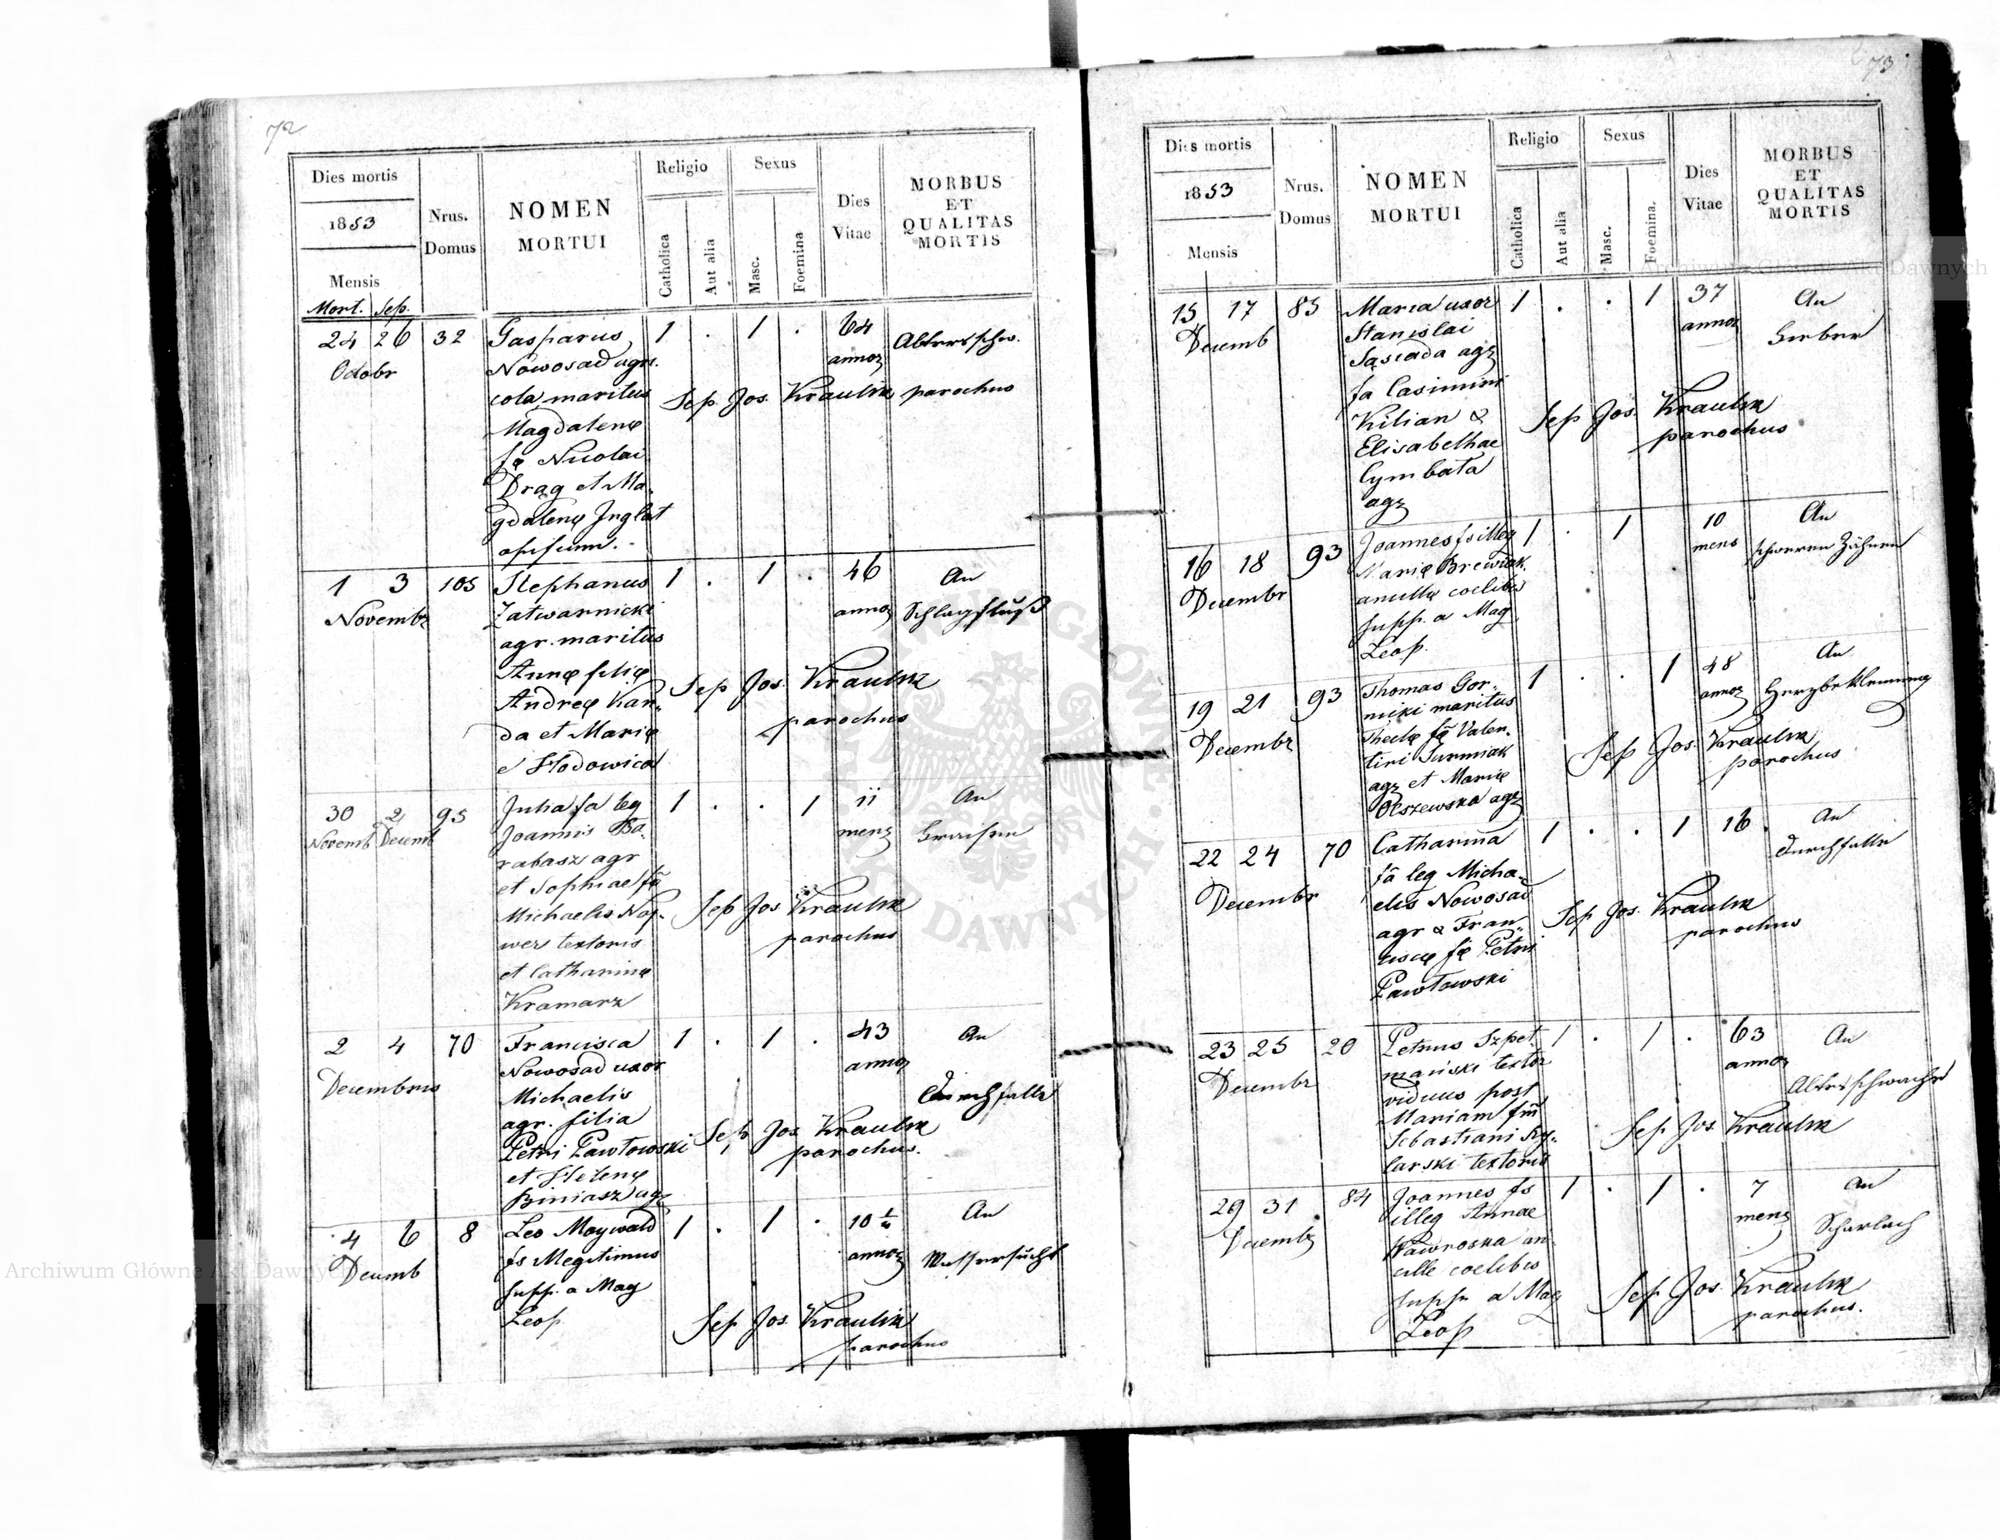 72
Dies mortis
1853
Mensis
Mort. Sep.
Nrus.
Domus
NOMEN
MORTUI
Religio
Catholica
Aut alia
Sexus
Masc.
Foemina
Dies
Vitae
MORBUS
ET
QUALITAS
MORTIS
24 26 32 Gasparus 1 . 1 . 64
Octobr Nowosad agri- annor
cola maritus
Sep. Jos. Kraulik parochus
Magdalenę
Nicolai
Drąg et Ma-
gdalenę Inglot
1 3 105 Stephanus 1 . 1 . 46 An
Novembr Zatwarnicki annor Schlagfluß
agr. maritus
Annę filię
Andreę Kan-
Sep Jos. Kraulik
parochus
da et Marię
e Hodowica
30 2 95 Julia fa leg 1 . . 1 11 An
Novemb Decemb Joannis Ba- mens
rabasz agr
et Sophiae fę
Michaelis Nap-
Sep Jos Kraulik
parochus
wer textoris
et Catharinę
Kramarz
2 4 70 Francisca 1 . 1 . 43 An
Decembris Nowosad uxor annor
Michaelis Durchfalle
agr. filia
Petri Pawłowski
Sep Jos Kraulik
parochus.
et Helenę
Biniasz agr
4 6 8 Leo Maywald 1 . 1 . 10 1/4 An
Decemb fs illegitimus annor Wassersucht
supp. a Mag
Leop
Sep Jos Kraulik
parochus
73
Dies mortis
1853
Mensis
Nrus.
Domus
NOMEN
MORTUI
Religio
Catholica
Aut alia
Sexus
Masc.
Foemina.
Dies
Vitae
MORBUS
ET
QUALITAS
MORTIS
15 17 85 Maria uxor 1 . . 1 37 An
Decemb Stanislai annor
Sąsiada agr
fa Casimiri
Kilian &
Sep Jos. Kraulik
parochus
Elisabethae
Cymbała
agr
16 18 93 Joannes fs illeg 1 . 1 10 An
Decembr Marię Brewiak mens schweren Zähnen
ancillę coelibis
supp. a Mag
Leop.
19 21 93 Thomas Gor- 1 . . 1 48 An
Decembr nicki maritus annor Herzbeklemmung
Theclę fę Valen-
tini Surmiak
Sep Jos. Kraulik
parochus
agr et Marię
Olszewska agr
22 24 70 Catharina 1 . . 1 16 . An
Decembr fa leg Micha- Durchfalle
elis Nowosad
agr & Fran-
ciscę fę Petri
Sep Jos. Kraulik
parochus
Pawłowski
23 25 20 Petrus Szpet- 1 . 1 . 63 An
Decembr mański textor annor Altersschwäche
viduus post
Mariam
Sebastiani Ry-
Sep Jos. Kraulik
larski textoris
29 31 84 Joannes fs 1 . 1 . 7 An
Decembr illeg Annae mens Scharlach
Nawroska an-
cille coelibis
supp a Mag
Leop
Sep Jos. Kraulik
parochus.
Archiwum Główne Akt Dawnych
Archiwum Główne Akt Dawnych
ARCHIWUM GŁÓWNE AKT DAWNYCH